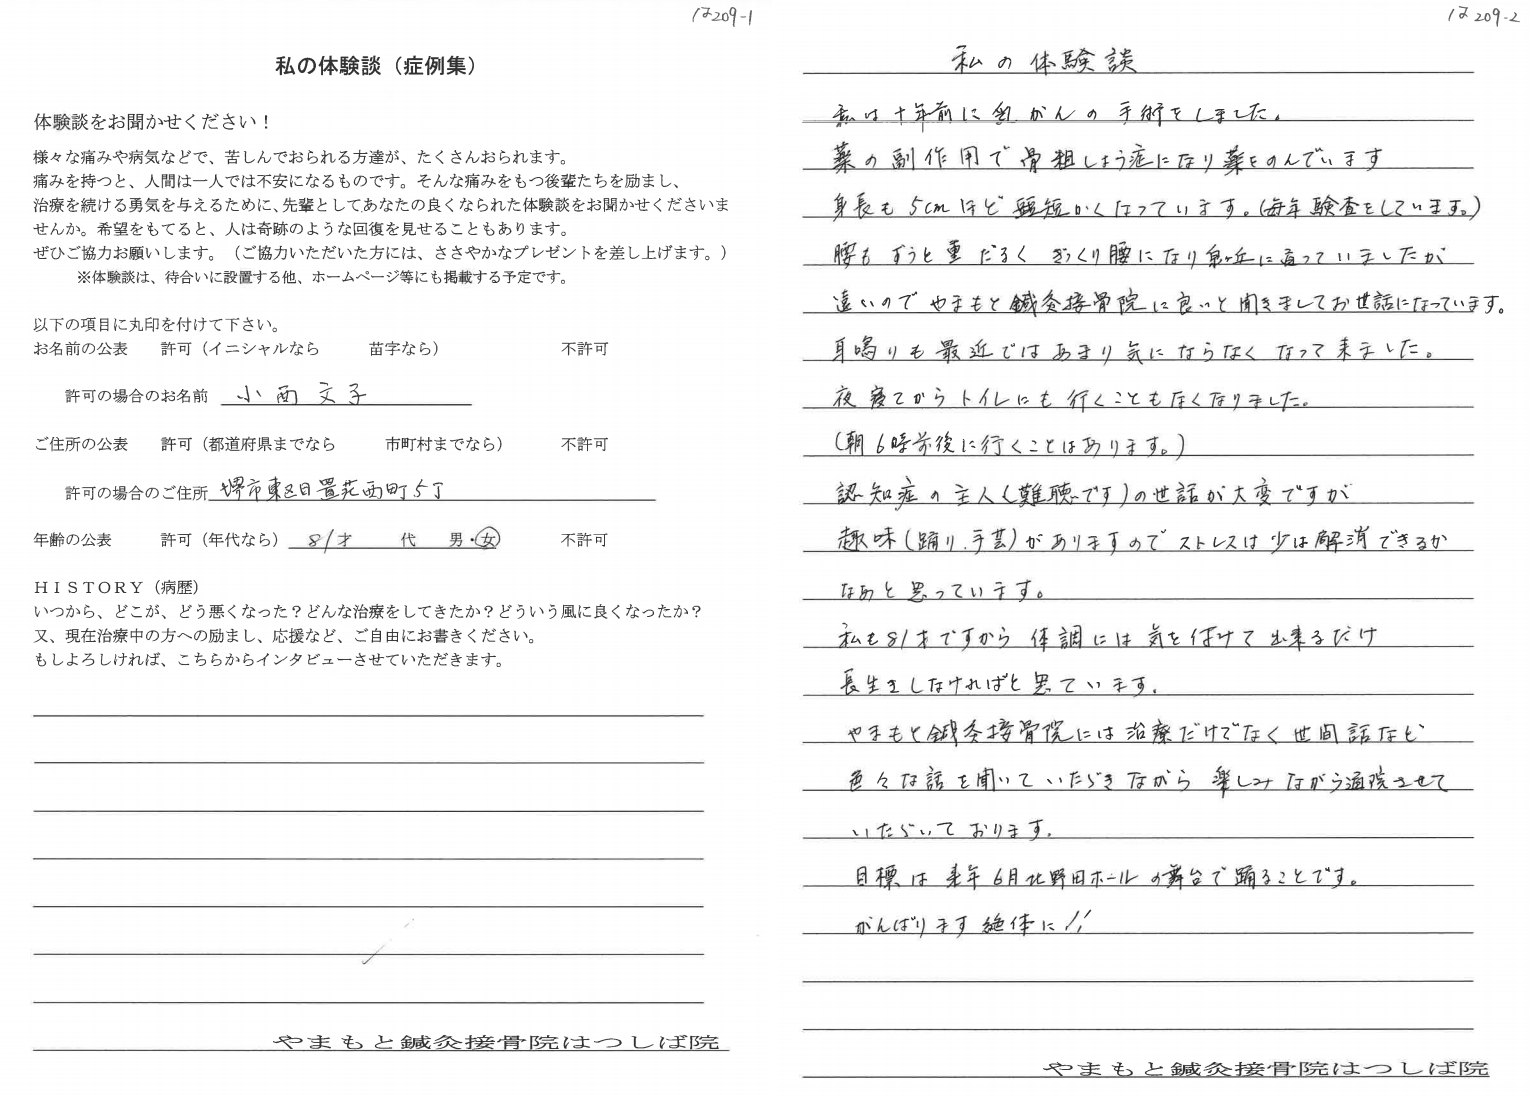 は209-1
私の体験談（症例集）
体験談をお聞かせください！
様々な痛みや病気などで、苦しんでおられる方達が、たくさんおられます。
痛みを持つと、人間は一人では不安になるものです。そんな痛みをもつ後輩たちを励まし、
治療を続ける勇気を与えるために、先輩としてあなたの良くなられた体験談をお聞かせくださいま
せんか。希望をもてると、人は奇跡のような回復を見せることもあります。
ぜひご協力お願いします。（ご協力いただいた方には、ささやかなプレゼントを差し上げます。）
※体験談は、待合いに設置する他、ホームページ等にも掲載する予定です。
以下の項目に丸印を付けて下さい。
お名前の公表　許可（イニシャルなら　苗字なら）　不許可
許可の場合のお名前　小西文子
ご住所の公表　許可（都道府県までなら　市町村までなら）　不許可
許可の場合のご住所　堺市東区日置荘西町5丁
年齢の公表　許可（年代なら）　81才　代　男・女　不許可
ＨＩＳＴＯＲＹ（病歴）
いつから、どこが、どう悪くなった？どんな治療をしてきたか？どういう風に良くなったか？
又、現在治療中の方への励まし、応援など、ご自由にお書きください。
もしよろしければ、こちらからインタビューさせていただきます。
やまもと鍼灸接骨院はつしば院
は209-2
私の体験談
私は十年前に乳がんの手術をしました。
薬の副作用で骨粗しょう症になり薬をのんでいます
身長も5cmほど短かくなっています。(毎年検査をしています。)
腰もずうと重だるくぎっくり腰になり泉ヶ丘に通っていましたが
遠いのでやまもと鍼灸接骨院に良いと聞きましてお世話になっています。
耳鳴りも最近ではあまり気にならなくなって来ました。
夜寝てからトイレにも行くこともなくなりました。
(朝6時前後に行くことはあります。)
認知症の主人(難聴です)の世話が大変ですが
趣味(踊り、手芸)がありますのでストレスは少は解消できるか
なあと思っています。
私も81才ですから体調には気を付けて出来るだけ
長生きしなければと思ています。
やまもと鍼灸接骨院には治療だけでなく世間話など
色々な話を聞いていただきながら楽しみながら通院させて
いただいております。
目標は来年6月北野田ホールの舞台で踊ることです。
がんばります絶体に!!
やまもと鍼灸接骨院はつしば院